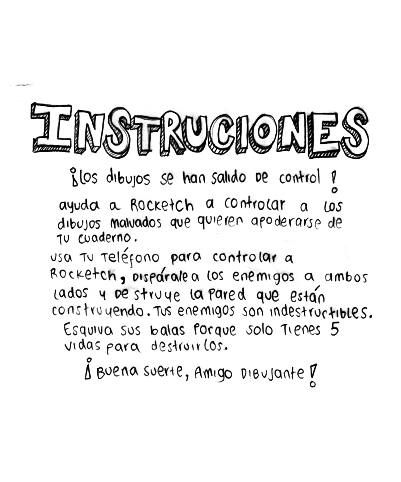 INSTRUCIONES
¡Los dibujos se han salido de control!
ayuda a Rocketch a controlar a los
dibujos malvados que quieren apoderarse de
tu cuaderno.
usa tu teléfono para controlar a
Rocketch, dispárale a los enemigos a ambos
lados y destruye la pared que están
construyendo. Tus enemigos son indestructibles.
Esquiva sus balas porque solo tienes 5
vidas para destruirlos.
¡Buena suerte, Amigo Dibujante!